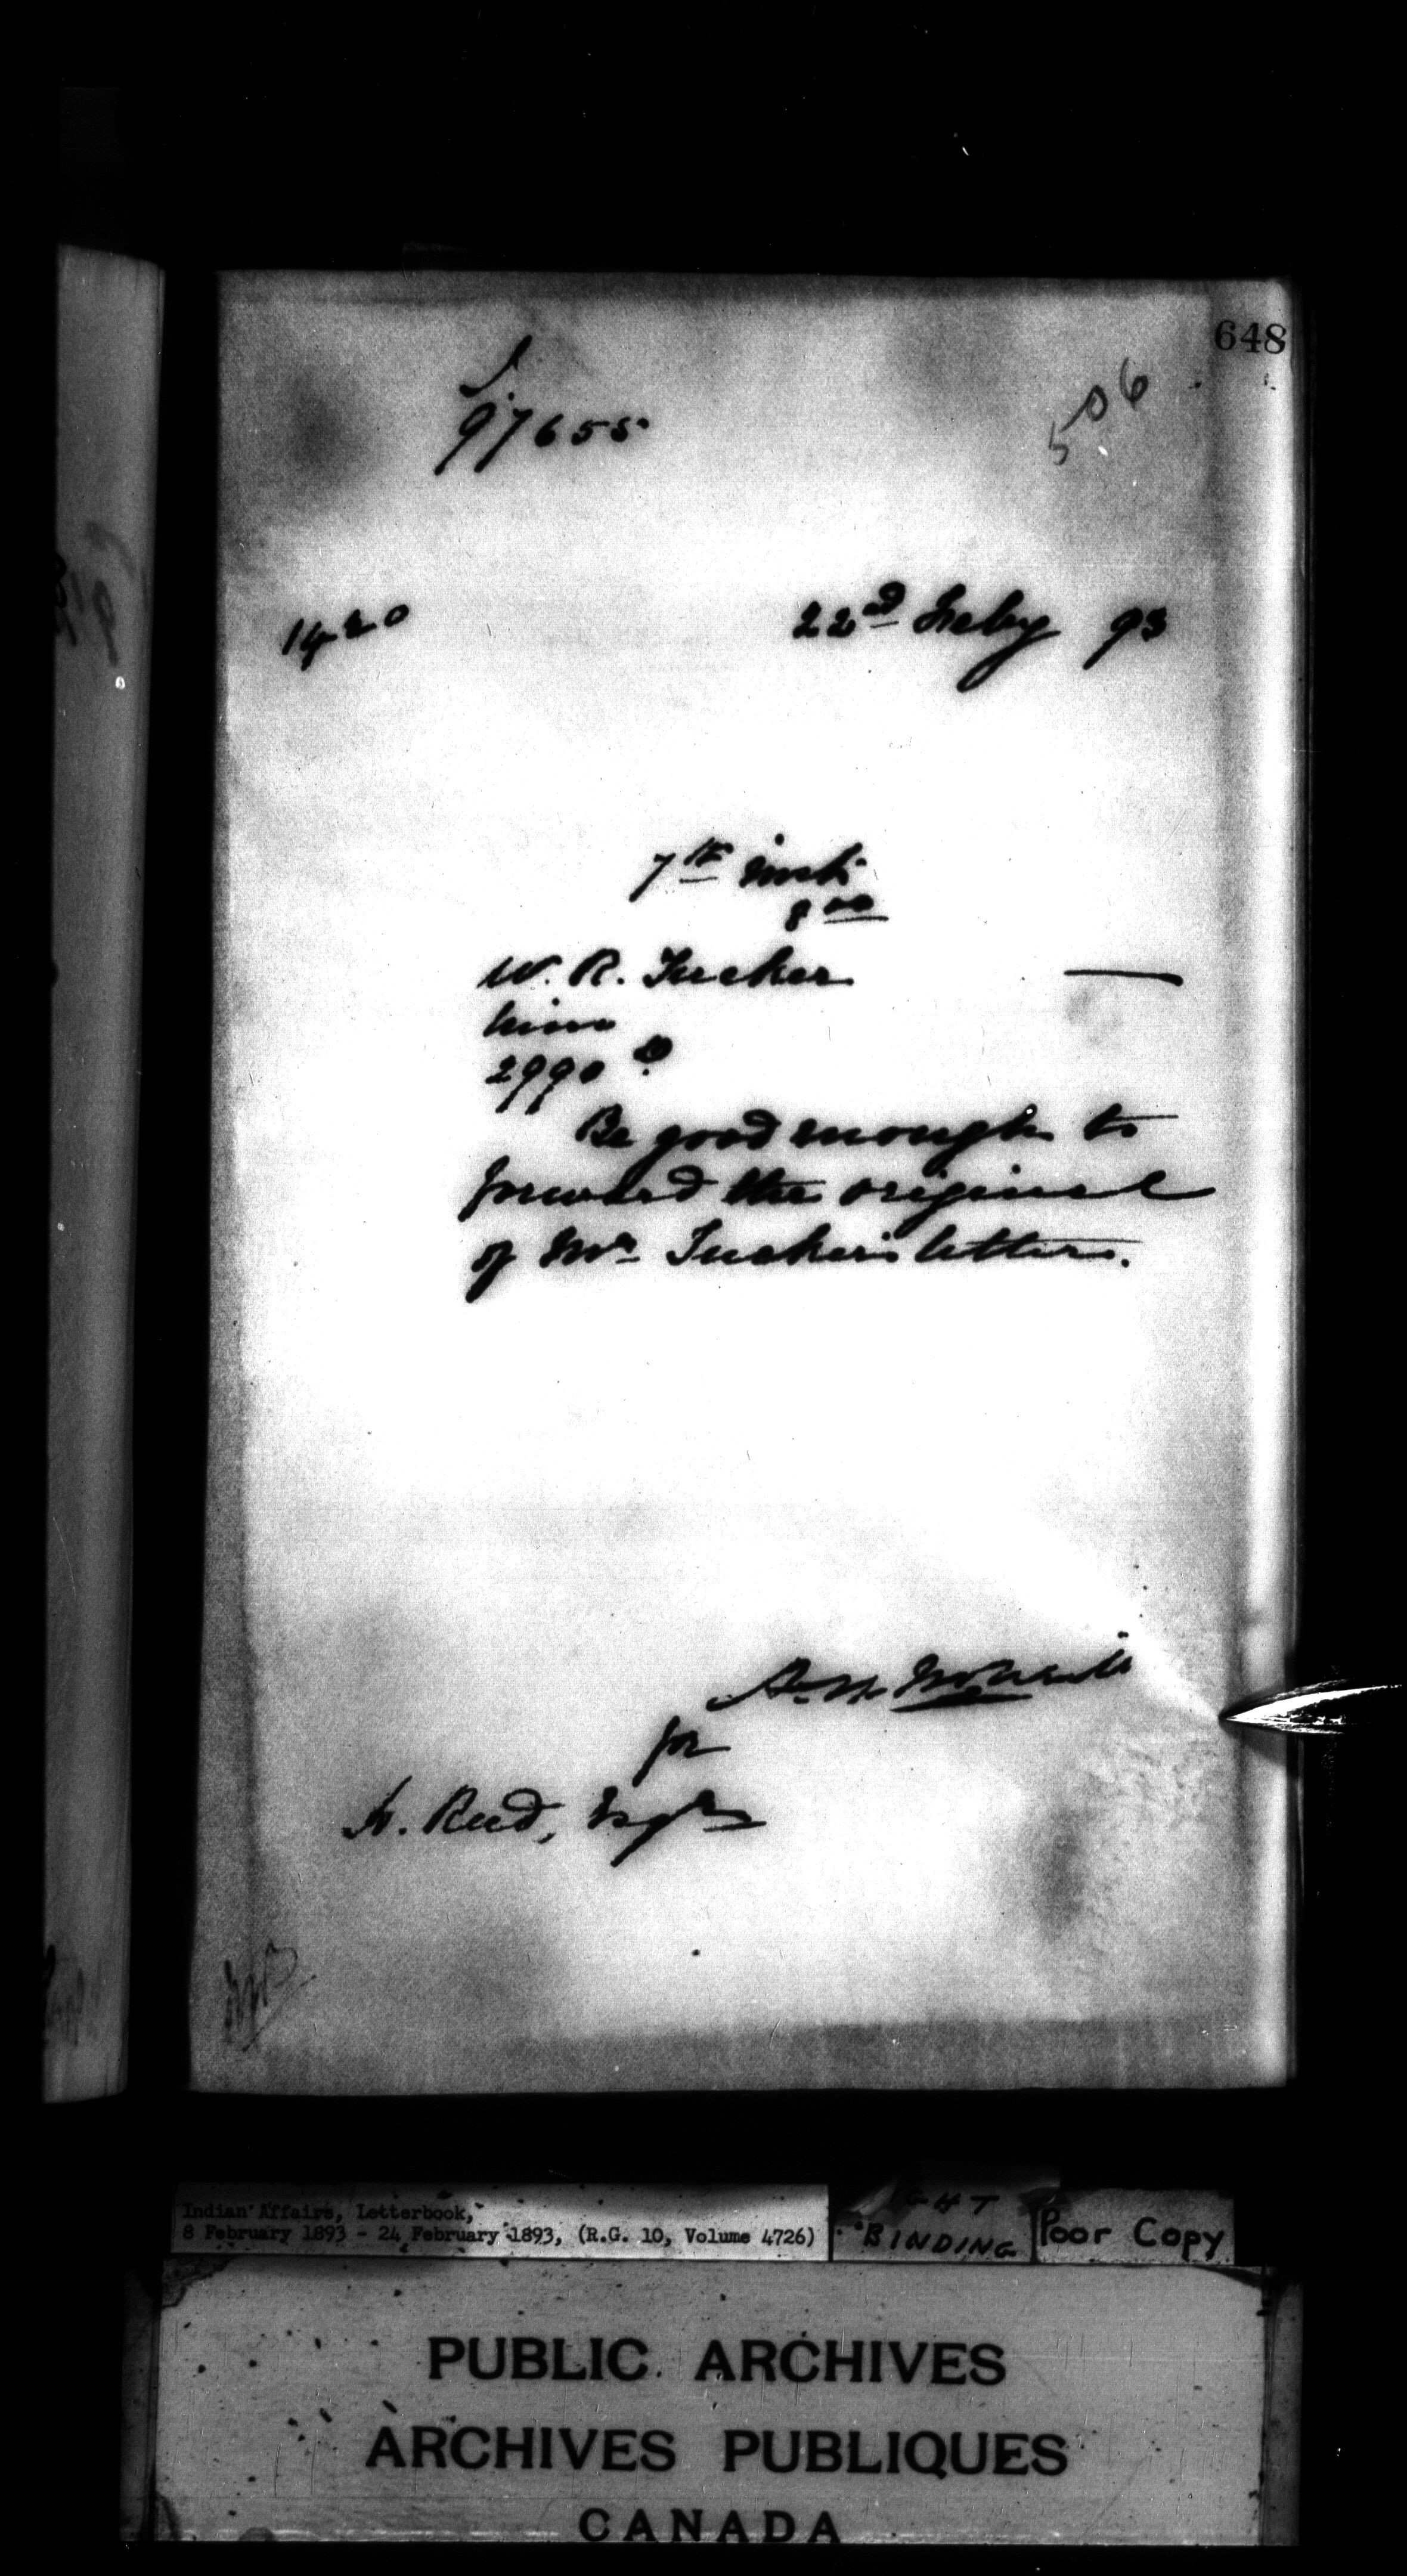 648
506
97655
1420
22nd Feby 93
7th inst.
8 00
W. R. Tucker
him
2990 D.
Be good enough to
forward the original
of Mr Tucker's letter.
for
Reed, Esqre
Indian Affairs, Letterbook,
8 February 1893 - 24 February 1893, (R.G. 10, Volume 4726)
GHT
BINDING
Poor Copy
PUBLIC ARCHIVES
ARCHIVES PUBLIQUES
CANADA